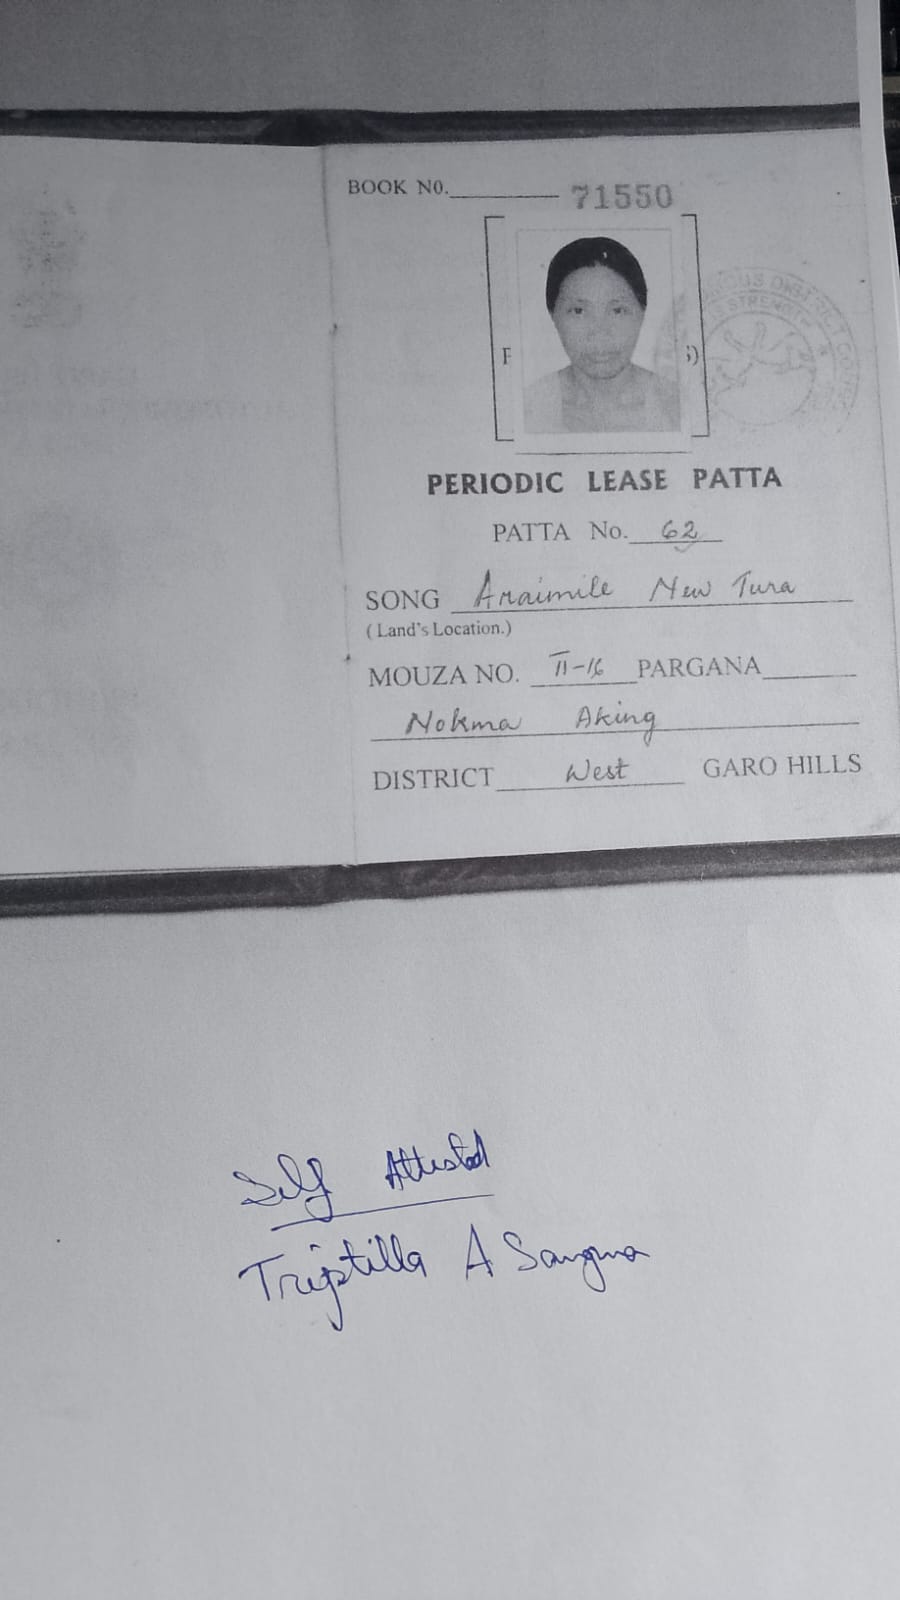 BOOK N0. 71550
F
S)
PERIODIC LEASE PATTA
PATTA No. 62
SONG Araimile New Tura
(Land's Location.)
MOUZA NO. II-16 PARGANA
Nokma Aking
DISTRICT West GARO HILLS
Self Attested
Triptilla A Sangma